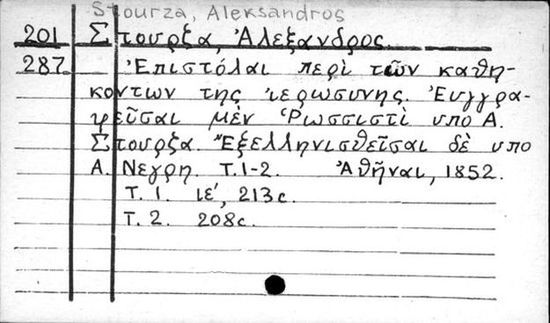 Stourza, Aleksandros
201 Στουρζα, Ἀλεξανδρος.
287 Ἐπιστόλαι περὶ τῶν καθη-
κοντων της ἱερωσυνης. Ἐυγγρα-
φεῦσαι μὲν Ῥωσσιστὶ υπο Α.
Στουρζα. Ἐξελληνισθεῖσαι δὲ υπο
Α. Νεγρη. Τ.1-2. Ἀθῆναι, 1852.
Τ. 1. ιε', 213c.
Τ. 2. 208c.